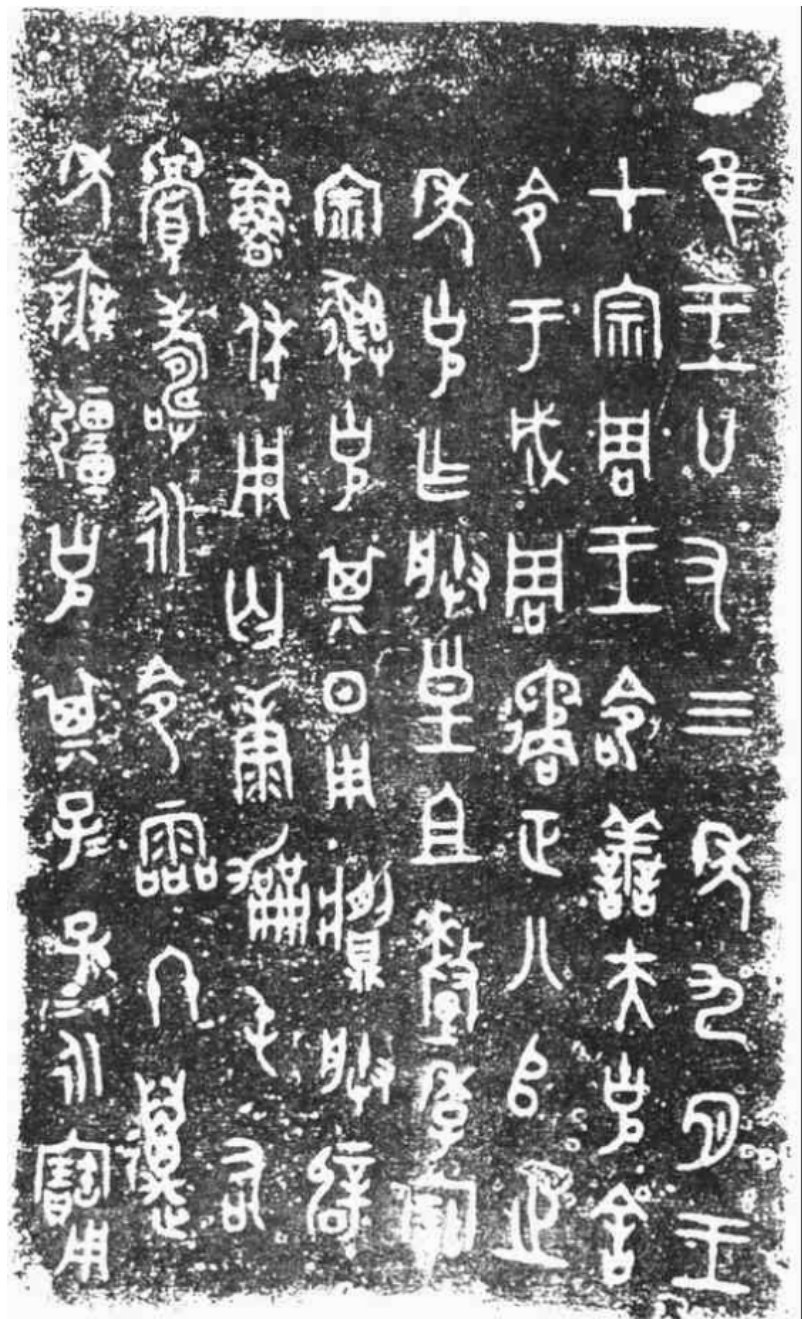 隹王廿又三年九月王
才宗周王命善夫克舍
令于成周遹正八𠂤之
年克乍朕皇且釐季寶
宗彝克其日用朕辟
魯休用匄康屯右
眉壽永令霝冬邁
年無疆克其子=孫=永寶用